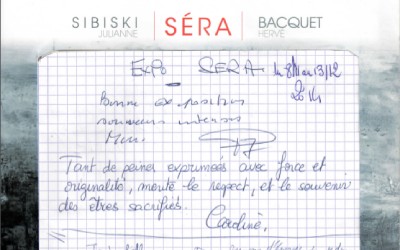 SIBISKI JULIANNE | SÉRA | BACQUET HERVÉ
EXPO SERA
2014
Bonne exposition
souvenirs intenses
Tant de peines exprimées avec force et
originalité, mérite le respect, et le souvenir
des êtres sacrifiés.
Caroline,